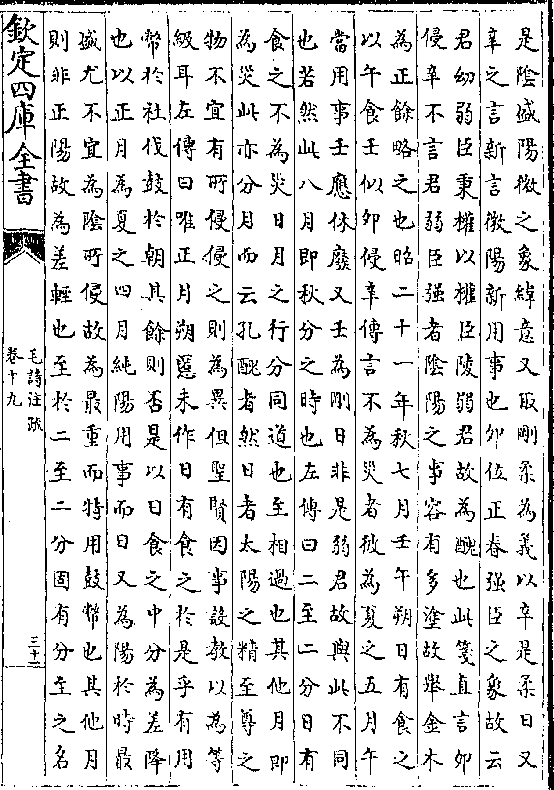 是陰盛陽微之象緯意又取剛柔為義以辛是柔日又
辛之言新言微陽新用事也卯位正春强臣之象故云
君幼弱臣秉權以權臣陵弱君故為醜也此箋直言卯
侵辛不言君弱臣强者陰陽之事容有多塗故舉金木
為正餘略之也昭二十一年秋七月壬午朔日有食之
以午食壬似卯侵辛傳言不為災者彼為夏之五月午
當用事壬應休廢又壬為剛日非是弱君故與此不同
也若然此八月即秋分之時也左傳曰二至二分日有
食之不為災日月之行分同道也至相過也其他月即
為災此亦分月而云孔醜者然日者太陽之精至尊之
物不宜有所侵侵之則為異但聖賢因事設教以為等
級耳左傳曰唯正月朔慝未作日有食之於是乎有用
幣於社伐鼓於朝其餘則否是以日食之中分為差降
也以正月為夏之四月純陽用事而日又為陽於時最
盛尤不宜為陰所侵故為最重而特用鼓幣也其他月
則非正陽故為差輕也至於二至二分固有分至之名
欽定四庫全書
毛詩注疏
卷十九
三十二